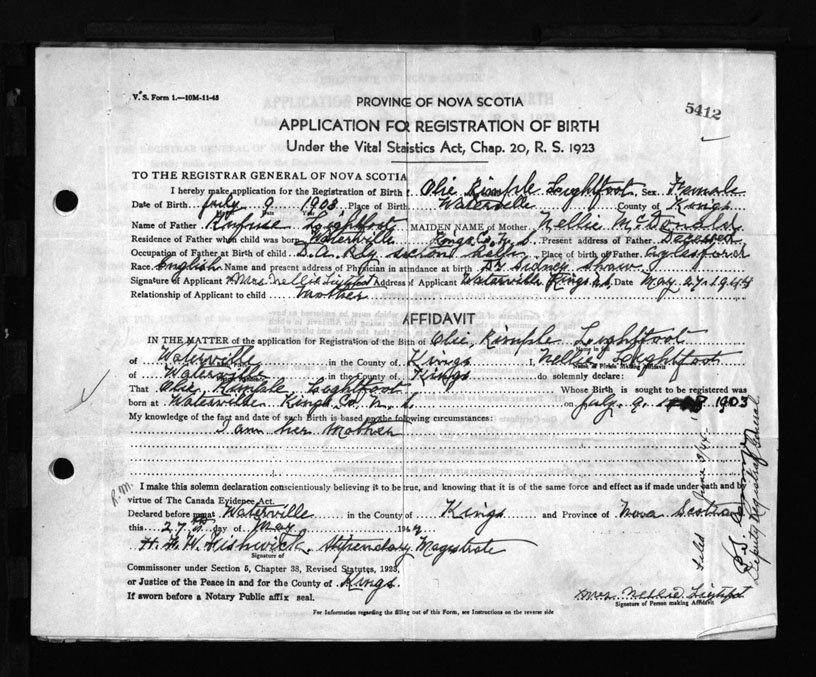 V. S. Form 1.—10M-11-43
5412
PROVINCE OF NOVA SCOTIA
APPLICATION FOR REGISTRATION OF BIRTH
Under the Vital Staistics Act, Chap. 20, R. S. 1923
TO THE REGISTRAR GENERAL OF NOVA SCOTIA
I hereby make application for the Registration of Birth of Olie Rimple Lightfoot Sex Female
Date of Birth July 9 1903 Place of Birth Waterville County of Kings
Name of Father Lightfoot MAIDEN NAME of Mother Nellie McDonald
Residence of Father when child was born Waterville Kings Co. N. S. Present address of Father Deceased
Occupation of Father at Birth of child D. A. Ry section Place of birth of Father Aylesford
Race English Name and present address of Physician in attendance at birth Dr Sidney Shaw
Signature of Applicant Mrs. Nellie Lightfoot Address of Applicant Waterville Kings N.S. Date May 27-1944
Relationship of Applicant to child mother
AFFIDAVIT
IN THE MATTER of the application for Registration of the Bith of Olie, Rimple Lightfoot
of Waterville in the County of Kings I, Nellie Lightfoot
Name of Person Making Affidavit
of Waterville in the County of Kings do solemnly declare:
That Olie, Lightfoot Whose Birth is sought to be registered was
born at Waterville Kings Co. N. S. on July. 9. 1903
My knowledge of the fact and date of such Birth is based on the following circumstances:
I am her Mother
R.M.
I make this solemn declaration conscientiously believing it to be true, and knowing that it is of the same force and effect as if made under oath and by
virtue of The Canada Evidence Act.
Declared before me at Waterville in the County of Kings and Province of Nova Scotia
this 27th day of May 1944
H. F. W. Fishwick, Stipendary Magistrate
Signature of
Commissioner under Section 5, Chapter 38, Revised Statutes, 1923,
or Justice of the Peace in and for the County of Kings.
If sworn before a Notary Public affix seal.
Mrs Nellie Lightfoot
Signature of Person making Affidavit
For Information regarding the filling out of this Form, see Instructions on the reverse side
June 3/44
Deputy Registrar General